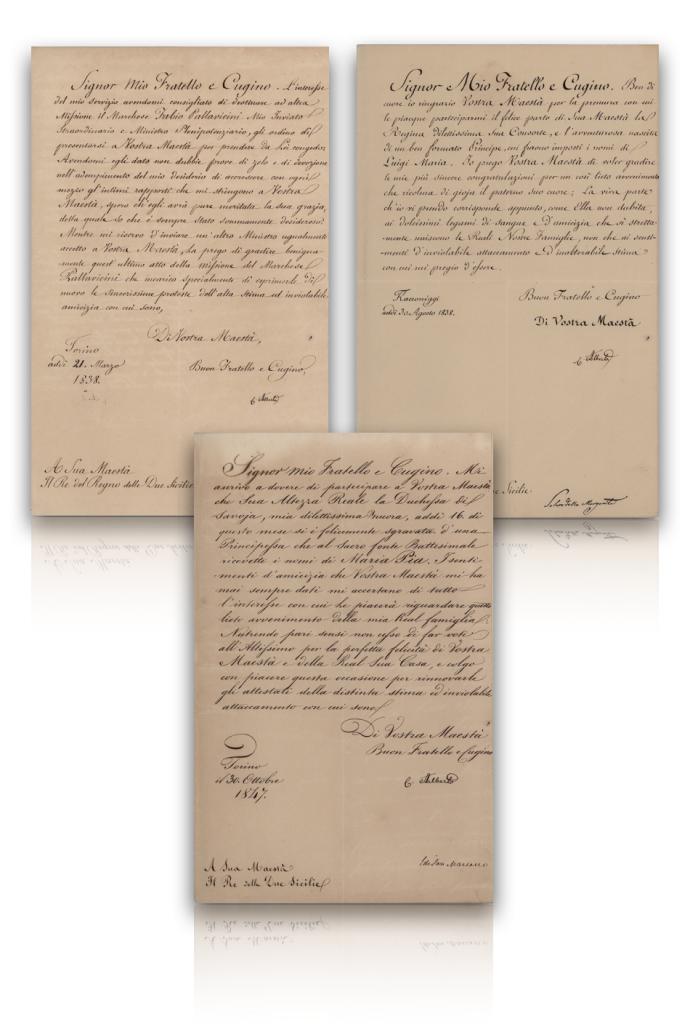 Signor Mio Fratello e Cugino. L'interesse
del mio servizio avendomi consigliato di destinare ad altra
Missione il Marchese Fabio Pallavicini Mio Inviato
Straordinario e Ministro Plenipotenziario, gli ordino di
presentarsi a Vostra Maestà per prendere da Lei congedo.
Avendomi egli dato non dubbie prove di zelo e di devozione
nell'adempimento del mio desiderio di accrescere con ogni
mezzo gl'intimi rapporti che mi stringono a Vostra
Maestà, spero ch'egli avrà pure meritato la sua grazia,
della qual cosa che è sempre stato sommamente desideroso.
Mentre mi riservo d'inviare un altro Ministro ugualmente
accetto a Vostra Maestà, La prego di gradire benigna-
mente quest'ultimo atto della missione del Marchese
Pallavicini che incarico specialmente di esprimerle di
nuovo le sincerissime proteste dell'alta stima ed inviolabile
amicizia con cui sono,
Di Vostra Maestà,
Torino
addì 21. Marzo
1838.
Buon Fratello e Cugino,
C Alberto
A Sua Maestà
Il Re del Regno delle Due Sicilie
Signor e Mio Fratello e Cugino. Ben di
cuore io ringrazio Vostra Maestà per la premura con cui
le piacque parteciparmi il felice parto di Sua Maestà la
Regina dilettissima Sua Consorte, e l'avventurosa nascita
di un ben formato Principe, cui furono imposti i nomi di
Luigi Maria. Io prego Vostra Maestà di voler gradire
le mie più sincere congratulazioni per un così lieto avvenimento
che ricolma di gioja il paterno suo cuore; La viva parte
ch'io vi prendo corrisponde appunto, come Ella non dubita,
ai dolcissimi legami di sangue e D'amicizia che sì stretta-
mente uniscono le Reali Nostre Famiglie, non che ai senti-
menti d'inviolabile attaccamento ed inalterabile stima
con cui mi pregio d'essere.
Racconiggi
addì 30. Agosto 1838.
Buon Fratello e Cugino
Di Vostra Maestà
C Alberto
e Sicilie.
Solaro della Margarita
Signor mio Fratello e Cugino. Mi
ascrivo a dovere di partecipare a Vostra Maestà
che Sua Altezza Reale la Duchessa di
Savoja, mia dilettissima Nuora, addì 16. di
questo mese si è felicemente sgravata d'una
Principessa che al Sacro fonte Battesimale
ricevette i nomi di Maria Pia. I senti-
menti d'amicizia che Vostra Maestà mi ha
mai sempre dati mi accertano di tutto
l'interesse con cui le piacerà riguardare questo
lieto avvenimento della mia Real famiglia.
Nutrendo pari sensi non cesso di far voti
all'Altissimo per la perfetta felicità di Vostra
Maestà e della Real Sua Casa, e colgo
con piacere questa occasione per rinnovarle
gli attestati della distinta stima ed inviolabile
attaccamento con cui sono
Di Vostra Maestà
Buon Fratello e Cugino
Torino
il 30. Ottobre
1847.
C Alberto
A Sua Maestà
Il Re delle Due Sicilie
E di San Marzano